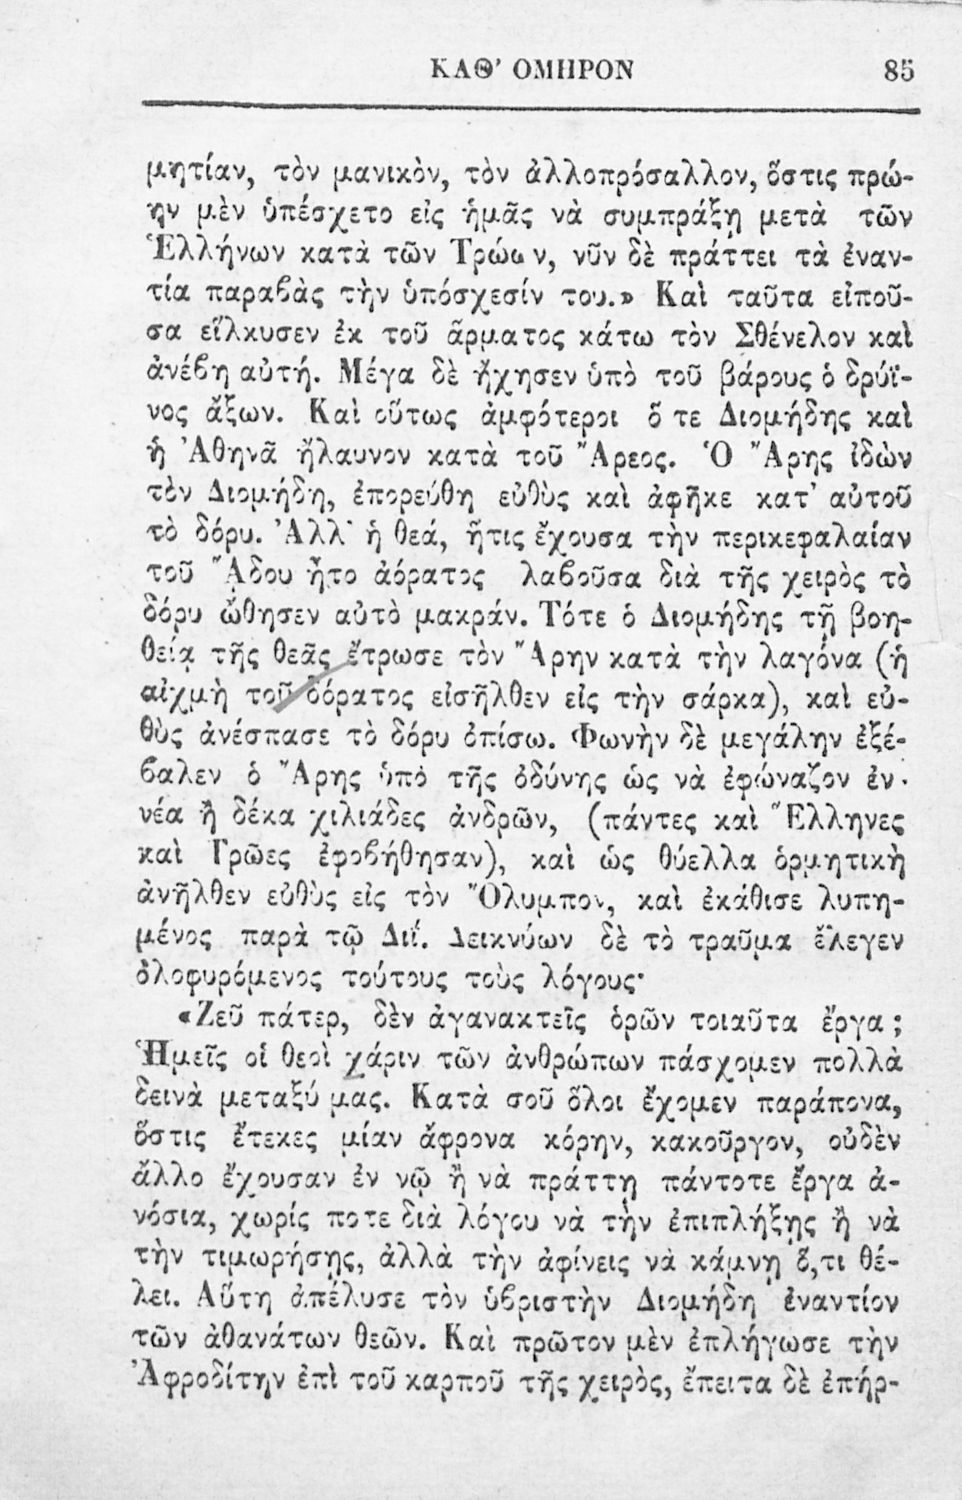 ΚΑΘ’ ΟΜΗΡΟΝ 85
μητίαν, τὸν μανικὸν, τὸν ἀλλοπρόσαλλον, ὅστις πρώ-
ην μὲν ὑπέσχετο εἰς ἡμᾶς νὰ συμπράξῃ μετὰ τῶν
Ἑλλήνων κατὰ τῶν Τρώων, νῦν δὲ πράττει τὰ ἐναν-
τία παραβὰς τὴν ὑπόσχεσίν του.» Καὶ ταῦτα εἰποῦ-
σα εἵλκυσεν ἐκ τοῦ ἅρματος κάτω τὸν Σθένελον καὶ
ἀνέβη αὐτή. Μέγα δὲ ἤχησεν ὑπὸ τοῦ βάρους ὁ δρύϊ-
νος ἄξων. Καὶ οὕτως ἀμφότεροι ὅ τε Διομήδης καὶ
ἡ Ἀθηνᾶ ἤλαυνον κατὰ τοῦ Ἄρεος. Ὁ Ἄρης ἰδὼν
τὸν Διομήδη, ἐπορεύθη εὐθὺς καὶ ἀφῆκε κατ’ αὐτοῦ
τὸ δόρυ. Ἀλλ’ ἡ θεά, ἥτις ἔχουσα τὴν περικεφαλαίαν
τοῦ ᾍδου ἦτο ἀόρατος λαβοῦσα διὰ τῆς χειρὸς τὸ
δόρυ ὤθησεν αὐτὸ μακράν. Τότε ὁ Διομήδης τῇ βοη-
θείᾳ τῆς θεᾶς ἔτρωσε τὸν Ἄρην κατὰ τὴν λαγόνα (ἡ
αἰχμὴ τοῦ δόρατος εἰσῆλθεν εἰς τὴν σάρκα), καὶ εὐ-
θὺς ἀνέσπασε τὸ δόρυ ὀπίσω. Φωνὴν δὲ μεγάλην ἐξέ-
βαλεν ὁ Ἄρης ὑπὸ τῆς ὀδύνης ὡς νὰ ἐφώναζον ἐν-
νέα ἢ δέκα χιλιάδες ἀνδρῶν, (πάντες καὶ Ἕλληνες
καὶ Τρῶες ἐφοβήθησαν), καὶ ὡς θύελλα ὁρμητικὴ
ἀνῆλθεν εὐθὺς εἰς τὸν Ὄλυμπον, καὶ ἐκάθισε λυπη-
μένος παρὰ τῷ Διΐ. Δεικνύων δὲ τὸ τραῦμα ἔλεγεν
ὀλοφυρόμενος τούτους τοὺς λόγους·
«Ζεῦ πάτερ, δὲν ἀγανακτεῖς ὁρῶν τοιαῦτα ἔργα ;
Ἡμεῖς οἱ θεοὶ χάριν τῶν ἀνθρώπων πάσχομεν πολλὰ
δεινὰ μεταξύ μας. Κατὰ σοῦ ὅλοι ἔχομεν παράπονα,
ὅστις ἔτεκες μίαν ἄφρονα κόρην, κακοῦργον, οὐδὲν
ἄλλο ἔχουσαν ἐν νῷ ἢ νὰ πράττῃ πάντοτε ἔργα ἀ-
νόσια, χωρίς ποτε διὰ λόγου νὰ τὴν ἐπιπλήξῃς ἢ νὰ
τὴν τιμωρήσῃς, ἀλλὰ τὴν ἀφίνεις νὰ κάμνῃ ὅ,τι θέ-
λει. Αὕτη ἀπέλυσε τὸν ὑβριστὴν Διομήδη ἐναντίον
τῶν ἀθανάτων θεῶν. Καὶ πρῶτον μὲν ἐπλήγωσε τὴν
Ἀφροδίτην ἐπὶ τοῦ καρποῦ τῆς χειρὸς, ἔπειτα δὲ ἐπήρ-